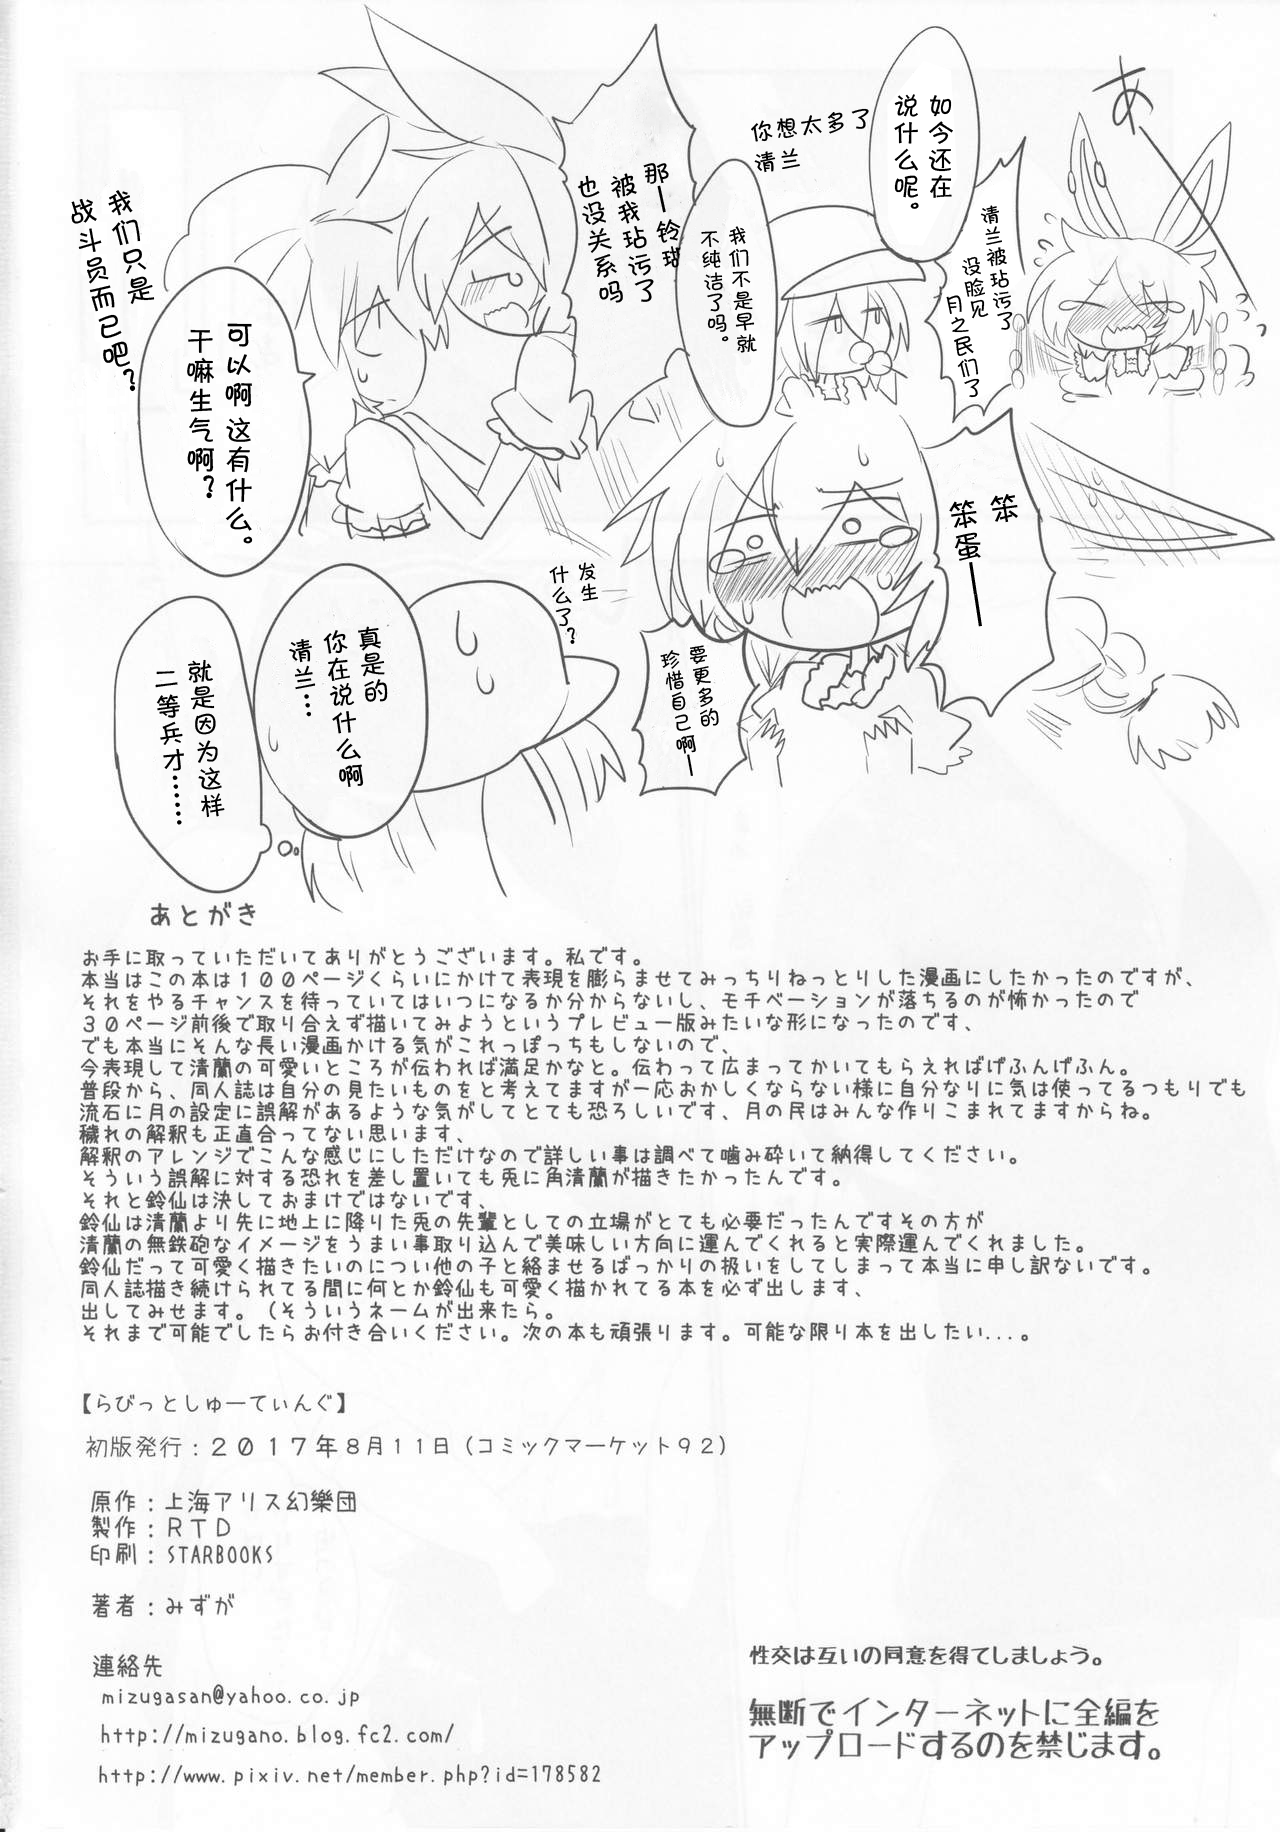 あ
清兰被玷污了
没脸见
月之民们了
如今还在
说什么呢。
你想太多了
清兰
我们不是早就
不纯洁了吗。
那——铃瑚
被我玷污了
也没关系吗
可以啊这有什么。
干嘛生气啊？
我们只是
战斗员而已吧？
笨
笨蛋——
要更多的
珍惜自己啊—
发生
什么了？
真是的
你在说什么啊
清兰…
就是因为这样
二等兵才……
あとがき
お手に取っていただいてありがとうございます。私です。
本当はこの本は１００ページくらいにかけて表現を膨らませてみっちりねっとりした漫画にしたかったのですが、
それをやるチャンスを待っていてはいつになるか分からないし、モチベーションが落ちるのが怖かったので
３０ページ前後で取り合えず描いてみようというプレビュー版みたいな形になったのです、
でも本当にそんな長い漫画かける気がこれっぽっちもしないので、
今表現して清蘭の可愛いところが伝われば満足かなと。伝わって広まってかいてもらえればげふんげふん。
普段から、同人誌は自分の見たいものをと考えてますが一応おかしくならない様に自分なりに気は使ってるつもりでも
流石に月の設定に誤解があるような気がしてとても恐ろしいです、月の民はみんな作りこまれてますからね。
穢れの解釈も正直合ってない思います、
解釈のアレンジでこんな感じにしただけなので詳しい事は調べて噛み砕いて納得してください。
そういう誤解に対する恐れを差し置いても兎に角清蘭が描きたかったんです。
それと鈴仙は決しておまけではないです、
鈴仙は清蘭より先に地上に降りた兎の先輩としての立場がとても必要だったんですその方が
清蘭の無鉄砲なイメージをうまい事取り込んで美味しい方向に運んでくれると実際運んでくれました。
鈴仙だって可愛く描きたいのについ他の子と絡ませるばっかりの扱いをしてしまって本当に申し訳ないです。
同人誌描き続けられてる間に何とか鈴仙も可愛く描かれてる本を必ず出します、
出してみせます。（そういうネームが出来たら。
それまで可能でしたらお付き合いください。次の本も頑張ります。可能な限り本を出したい...。
【らびっとしゅーてぃんぐ】
初版発行：２０１７年８月１１日（コミックマーケット９２）
原作：上海アリス幻樂団
製作：ＲＴＤ
印刷：STARBOOKS
著者：みずが
連絡先
mizugasan@yahoo.co.jp
http://mizugano.blog.fc2.com/
http://www.pixiv.net/member.php?id=178582
性交は互いの同意を得てしましょう。
無断でインターネットに全編を
アップロードするのを禁じます。